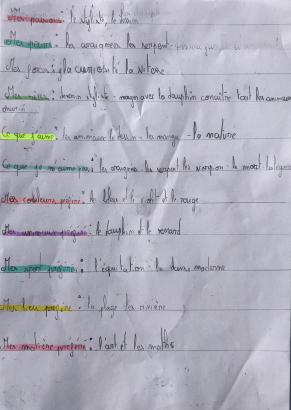 Mes passions : le stylisme, le dessin
Mes peurs : les araignées les serpent
Mes : la curiosité la
Mes : devenir styliste - nager avec les dauphin connaître tout les animaux
Ce que j'aime : les animaux le dessin - les manga - la nature
Ce que je n'aime pas : les araignées les serpent les scorpion - la mort
Mes couleurs préféré : le bleu et le violet et le rouge
Mes animaux préféré : le dauphin et le renard
Mes sport préféré : l'équitation - la danse moderne
Mes lieu préféré : la plage les rivière
Mes matière préféré : l'art et les maths